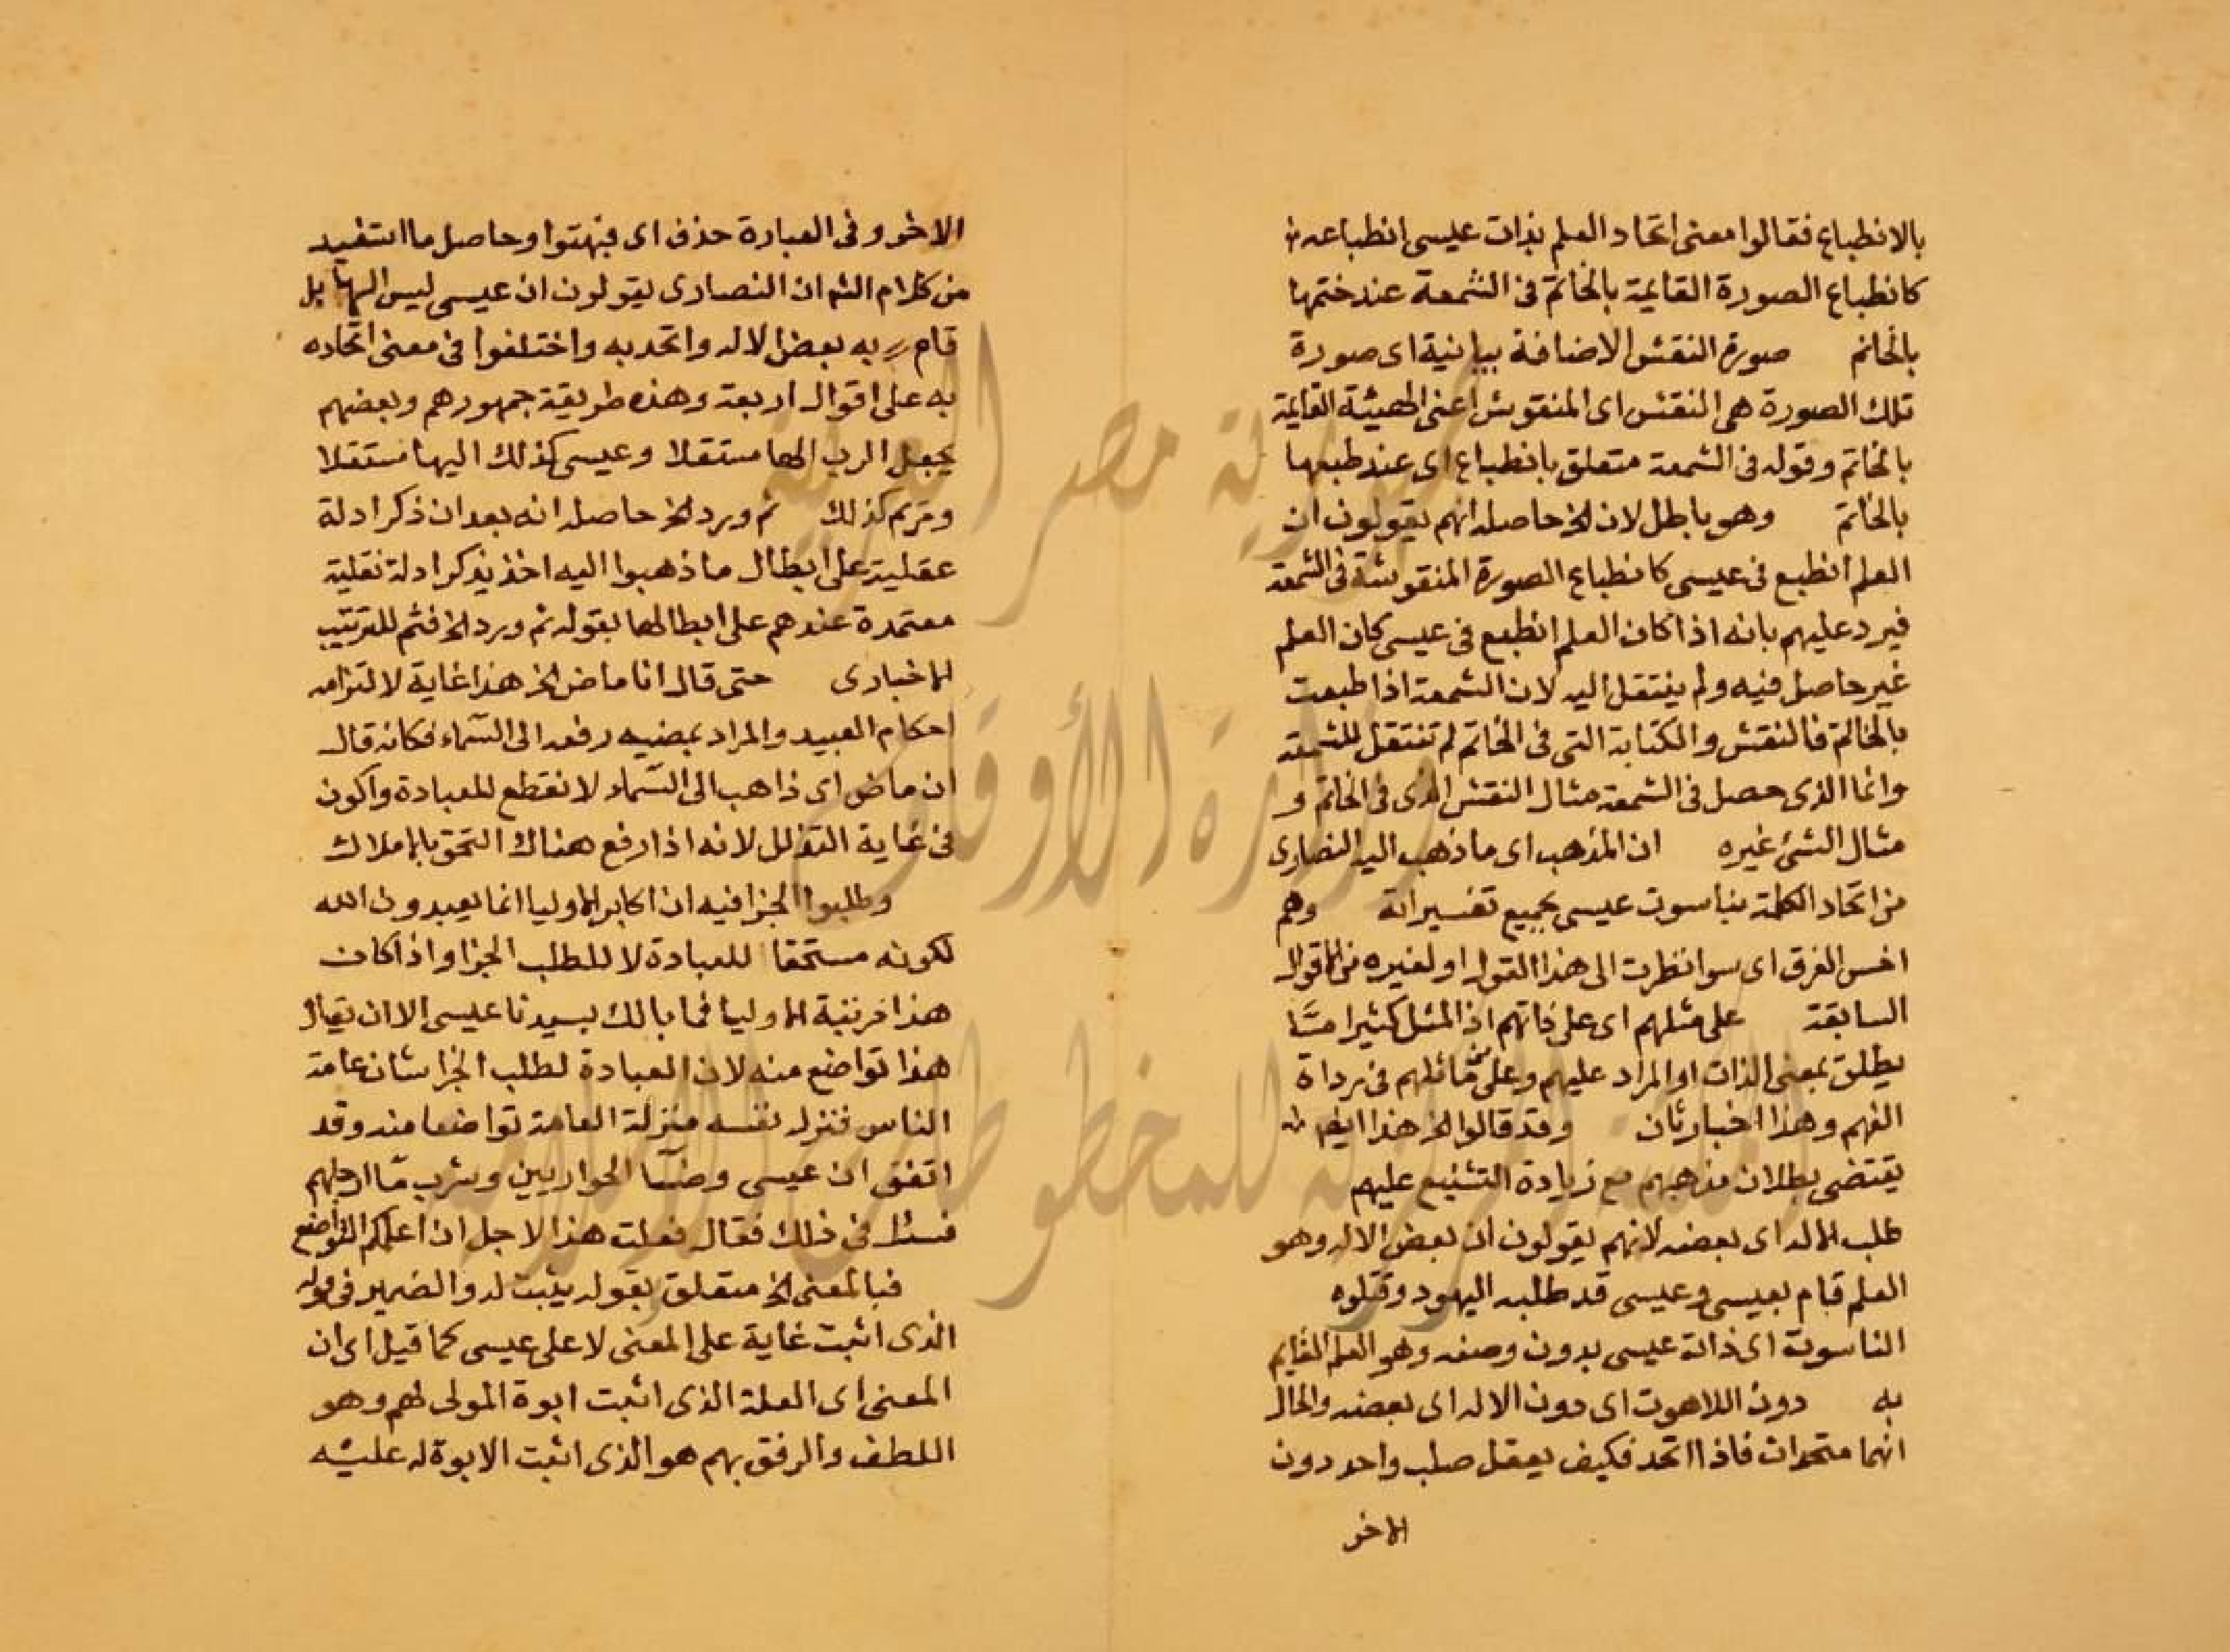 بالانطباع فقالوا معنى اتحاد العلم بذات عيسى انطباعه
كانطباع الصورة القايمة بالخاتم فى الشمعة عند ختمها
بالخاتم صورة النقش الاضافة بيانية اى صورة
تلك الصورة هى النقش اى المنقوش اعنى الهيئة القايمة
بالخاتم وقوله فى الشمعة متعلق بانطباع اى عند طبعها
بالخاتم وهو باطل لان الخ حاصله انهم يقولون ان
العلم انطبع فى عيسى كانطباع الصورة المنقوشة فى الشمعة
فيرد عليهم بانه اذا كان العلم انطبع فى عيسى كان العلم
غير حاصل فيه ولم ينتقل اليه لان الشمعة اذا طبعت
بالخاتم فالنقش والكتابة التى فى الخاتم لم تنتقل للشمعة
وانما الذى حصل فى الشمعة مثال النقش الذى فى الخاتم و
مثال الشئ غيره ان المذهب اى ما ذهب اليه النصارى
من اتحاد الكلمة بناسوت عيسى بجميع تفسيراته وهم
اخس الفرق اى سوا نظرت الى هذا القول او لغيره من الاقوال
السابقة على مثلهم اى على ذاتهم اذ المثل كثيرا ما
يطلق بمعنى الذات او المراد عليهم وعلى من ماثلهم فى رداة
الفهم وهذا اخباريان وقد قالوا الخ هذا ايضا
يقتضى بطلان مذهبهم مع زيادة التشنيع عليهم
طلب الاله اى بعضه لانهم يقولون ان بعض الاله وهو
العلم قام بعيسى وعيسى قد طلبه اليهود وقتلوه
الناسوت اى ذات عيسى بدون وصفه وهو العلم القايم
به دون اللاهوت اى دون الاله اى بعضه والحال
انهما متحدان فاذا اتحد فكيف يعقل صلب واحد دون
الاخر
الاخر وفى العبارة حذف اى فبهتوا وحاصل ما استفيد
من كلام الشم ان النصارى يقولون ان عيسى ليس الها بل
قام به بعض الاله واتحد به واختلفوا فى معنى اتحاده
به على اقوال اربعة وهذه طريقة جمهورهم وبعضهم
يجعل الرب الها مستقلا وعيسى كذلك اليها مستقلا
ومريم كذلك ثم ورد الخ حاصله انه بعد ان ذكر ادلة
عقلية على ابطال ما ذهبوا اليه اخذ يذكر ادلة نقلية
معتمدة عندهم على ابطالها بقوله ثم ورد الخ فثم للترتيب
الاخبارى حتى قال انا ماض الخ هذا غاية لالتزامه
احكام العبيد والمراد بمضيه رفعه الى السماء فكانه قال
ان ماض اى ذاهب الى السماء لانقطع للعبادة واكون
فى غاية التذلل لانه اذا رفع هناك التحق بالاملاك
وطلبوا الجزا فيه ان اكابر الاوليا انما يعبدون الله
لكونه مستحقا للعبادة لا للطلب الجزا واذا كان
هذا مرتبة الاوليا فما بالك بسيدنا عيسى الا ان يقال
هذا تواضع منه لان العبادة لطلب الجزا شان عامة
الناس فنزل نفسه منزلة العامة تواضعا منه وقد
اتفق ان عيسى وضا الحواريين وشرب ماء ارجلهم
فسئل فى ذلك فقال فعلت هذا لاجل ان اعلمكم التواضع
فبالمعنى الخ متعلق بقوله يثبت له والضمير فى قوله
الذى اثبت غاية على المعنى لا على عيسى كما قيل اى ان
المعنى اى العلة الذى اثبت ابوة المولى لهم وهو
اللطف والرفق بهم هو الذى اثبت الابوة له عليه